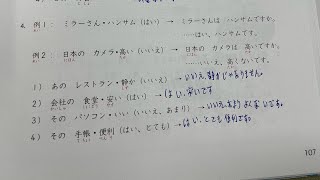 4. 例1： ミラーさん・ハンサム（はい）→ ミラーさんは ハンサムですか。
……はい、ハンサムです。
例2： 日本の カメラ・高い（いいえ）→ 日本の カメラは 高いですか。
……いいえ、高くないです。
1） あの レストラン・静か（いいえ）→ いいえ、静かじゃありません。
2） 会社の 食堂・安い（はい）→ はい、安いです
3） その パソコン・いい（いいえ、あまり）→ いいえ、あまり よくないです。
4） その 手帳・便利（はい、とても）→ はい、とても 便利です。
107